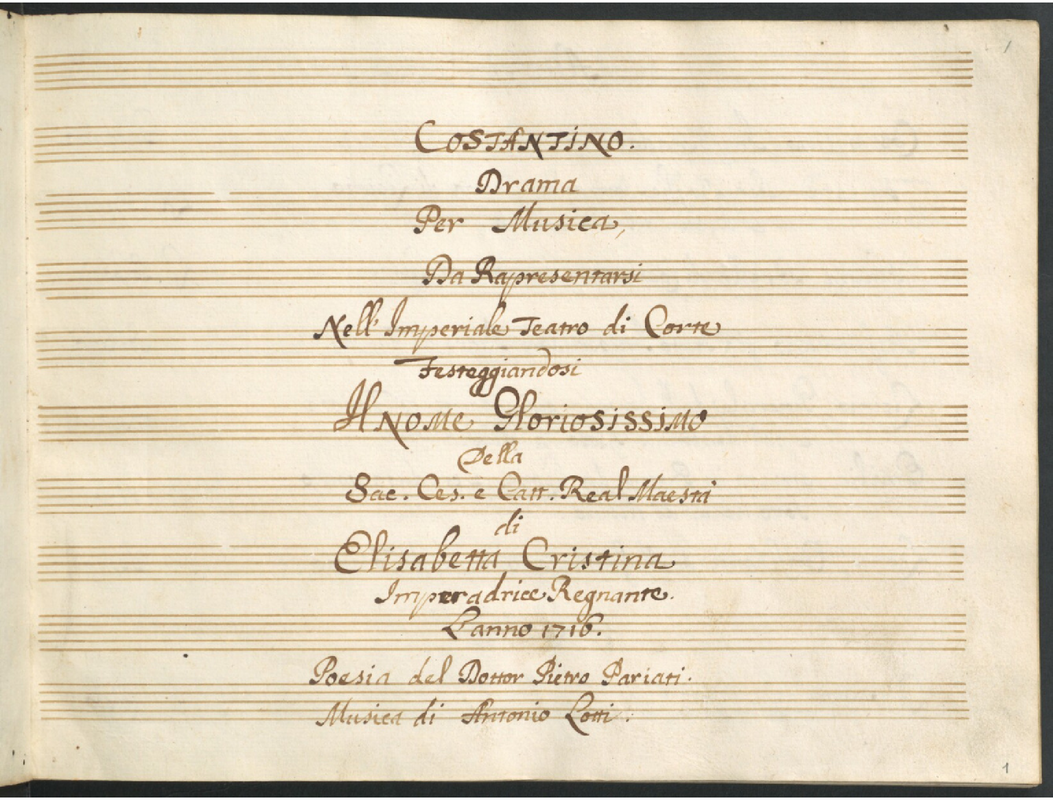 1
COSTANTINO.
Drama
Per Musica,
Da Rapresentarsi
Nell' Imperiale Teatro di Corte
Festeggiandosi
Il NOME GloriosissiMO
Della
Sac. Ces. e Catt. Real Maestà
di
Elisabetta Cristina
Imperadrice Regnante.
L'anno 1716.
Poesia del Dottor Pietro Pariati.
Musica di Antonio Lotti.
1